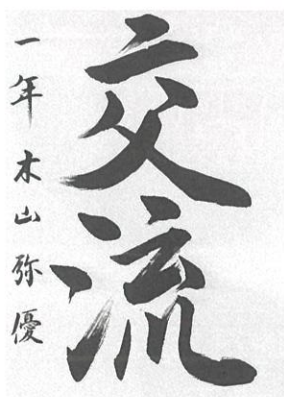 交流
一年 木山弥優